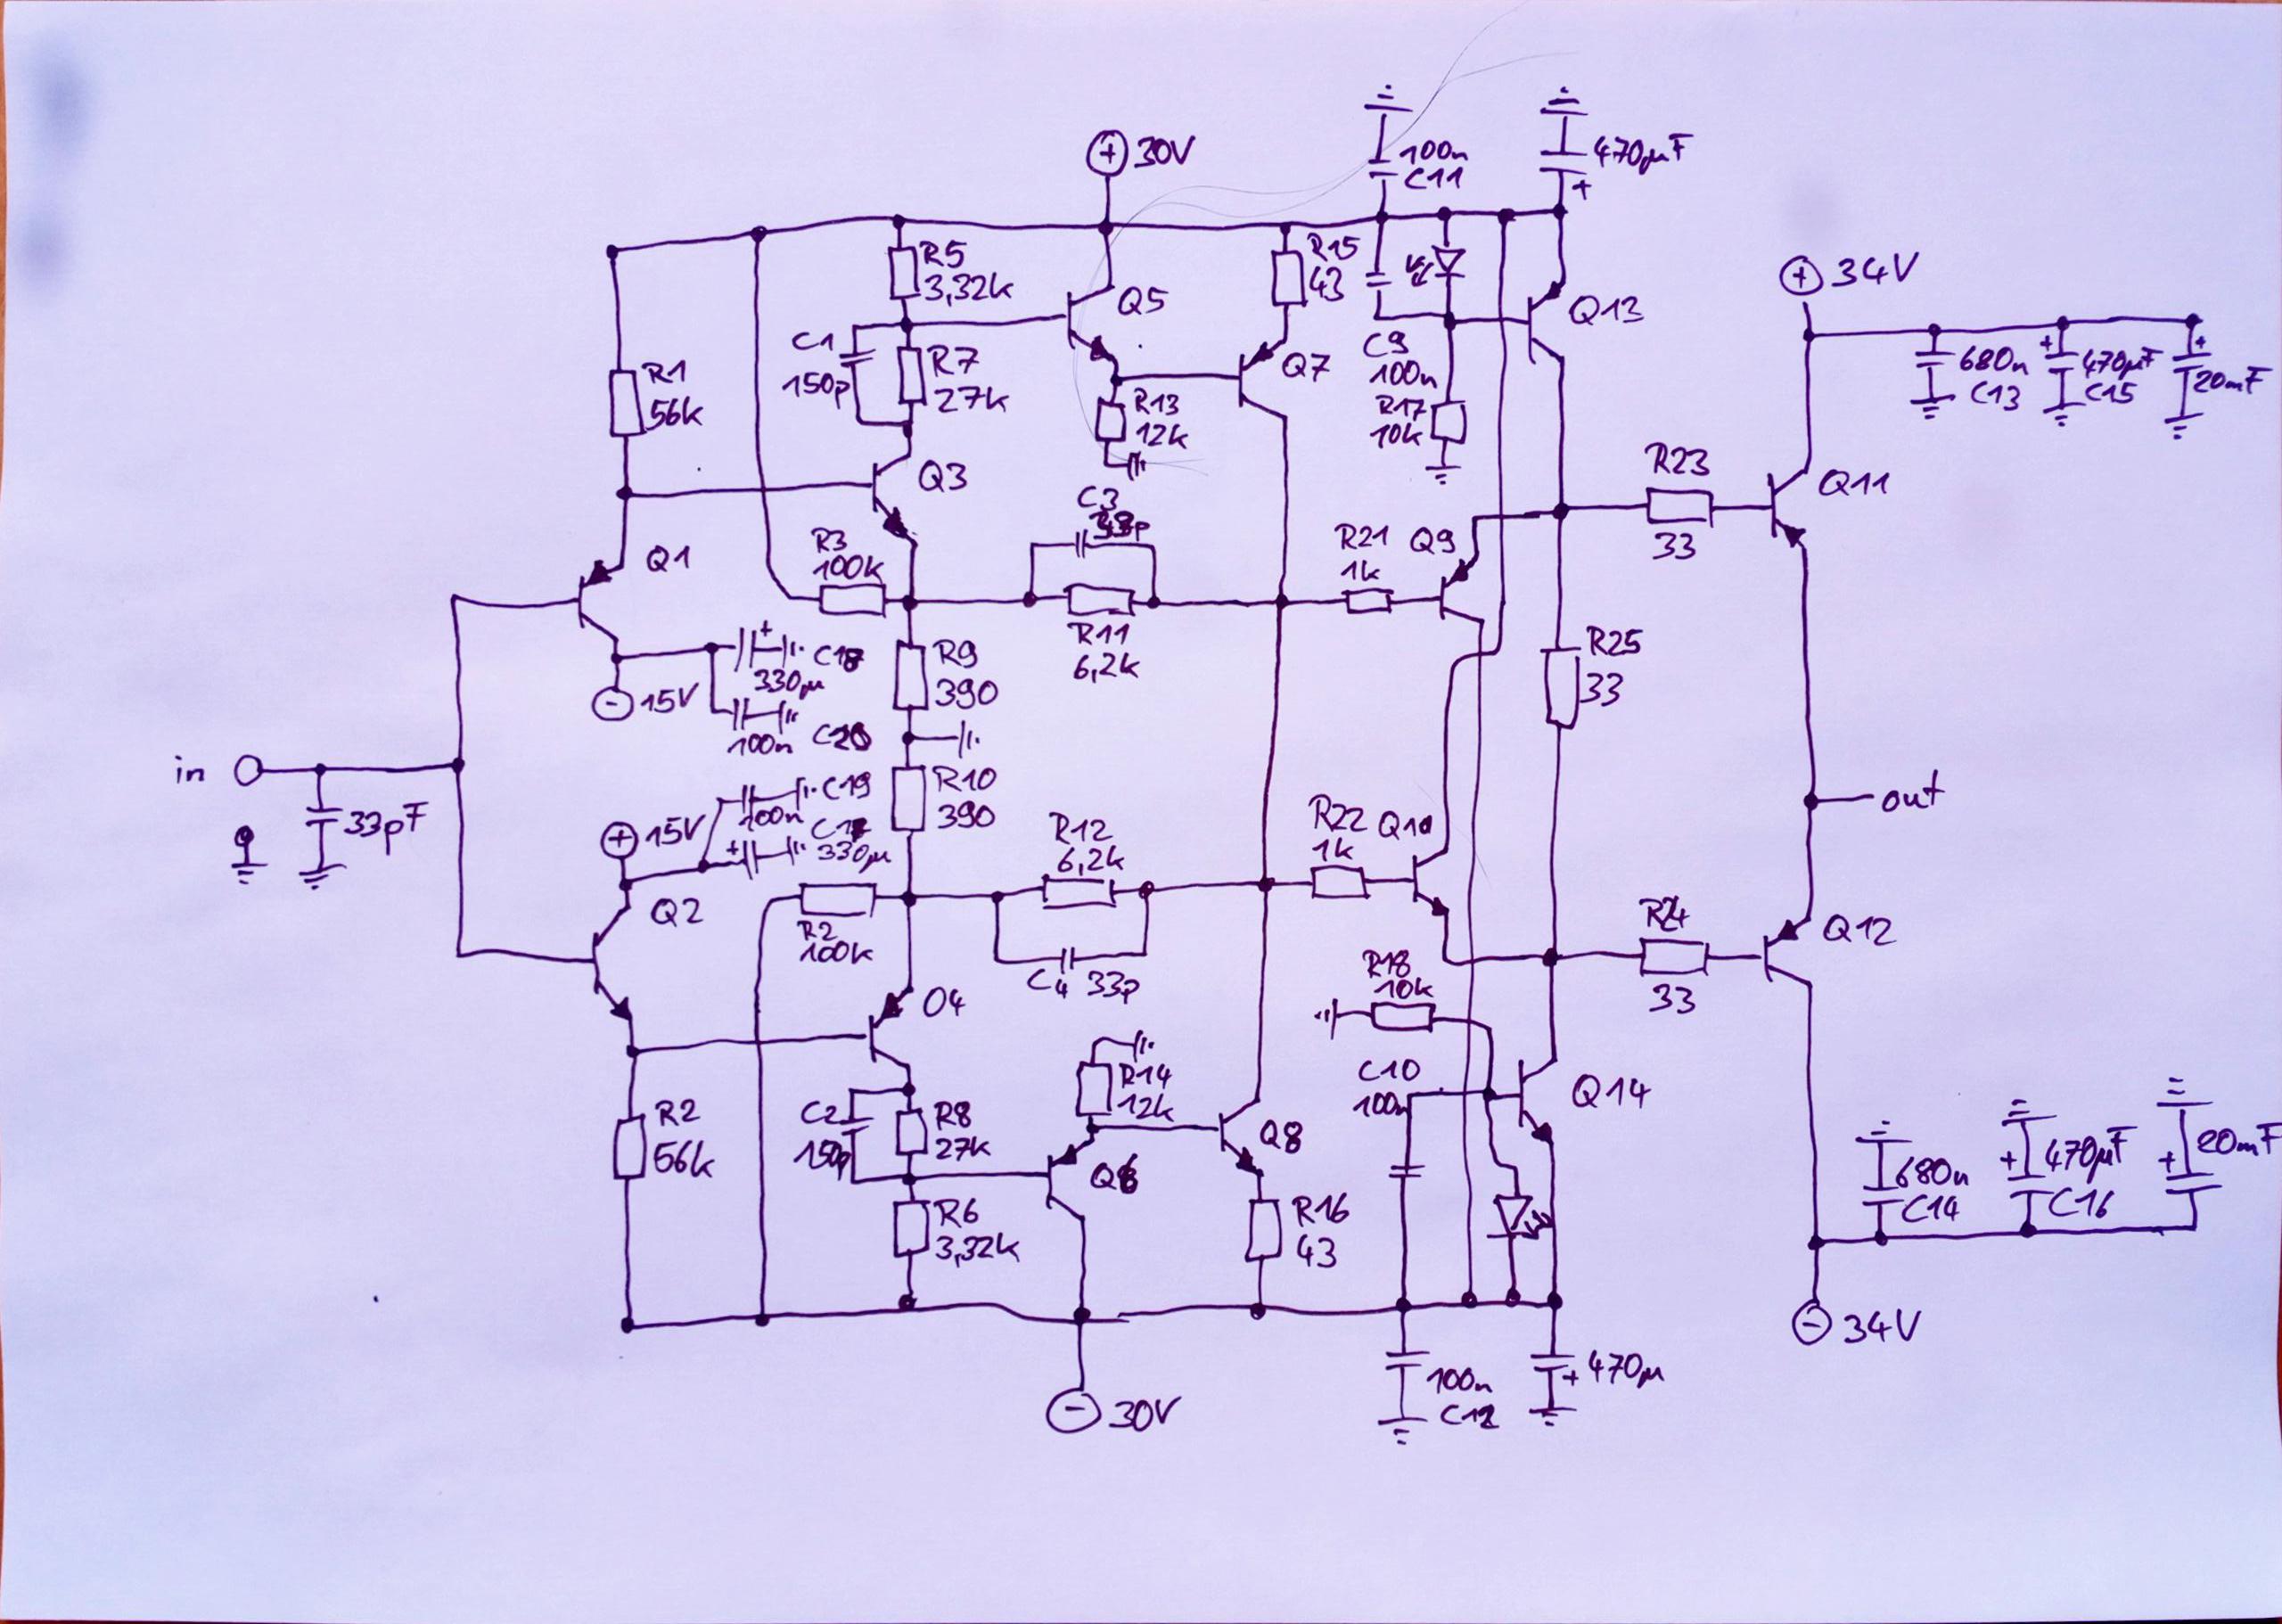 + 30V
100n
C11
470µF
+
R5
3,32k
Q5
R15
43
Q13
+ 34V
C1
150p
R7
27k
Q7
C9
100n
R17
10k
680n
C13
+
470µF
C15
+
20mF
R1
56k
R13
12k
Q3
R23
33
Q11
C3
33p
R21
1k
Q9
Q1
R3
100k
R11
6,2k
+
C18
330µ
- 15V
100n C20
R9
390
R25
33
in
33pF
C19
100n
+ 15V
+
C17
330µ
R10
390
out
R12
6,2k
R22
1k
Q10
Q2
R2
100k
R24
33
Q12
C4 33p
Q4
R18
10k
R14
12k
C10
100n
Q14
R2
56k
C2
150p
R8
27k
Q6
Q8
R6
3,32k
R16
43
680n
C14
+
470µF
C16
+
20mF
- 34V
- 30V
100n
C12
+ 470µ